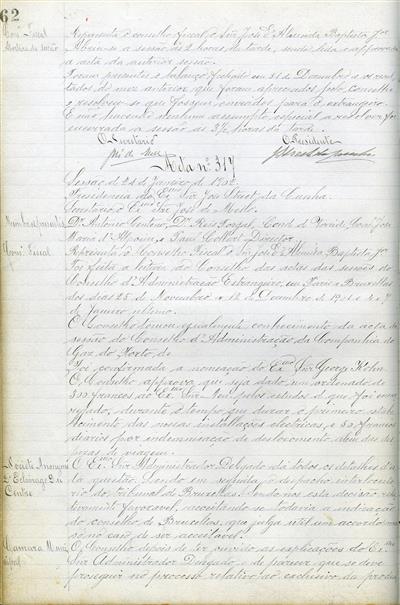 62
Representa o conselho fiscal o Snr José d'Almeida Baptista Jor
Abriu-se a sessão ás 2 horas da tarde, sendo lida e approvada
a acta da anterior sessão.
Foram presentes o balanço fechado em 31 de Dezembro e os resul-
tados do mez anterior que foram approvados pelo Conselho
e resolveu-se que fossem enviados para o estrangeiro.
E não havendo nenhum assumpto especial a resolver foi
encerrada a sessão ás 3½ horas da tarde.
O Secretario O Presidente
José de Mello
Acta nº 317
Sessão de 24 de Janeiro de 1902
Presidencia do Exmo Snr José Street da Cunha
Secretario o Exmo Snr José de Mello.
Dr. Antonio Centeno, Dr. Reis Torgal, Cond. d'
Maria d'Alpoim, e Paul Collart Director.
Consº Fiscal
Representa o Conselho Fiscal o Sr. José d'Almeida Baptista Jr
Foi feita a leitura ao Conselho das actas das sessões do
Conselho d'Administração Estrangeiro, em Paris e Bruxellas
dos dias 28 de Novembro e 12 de Dezembro de 1901 e 4 e 7
de Janeiro ultimo.
O Conselho tomou egualmente conhecimento da acta da
sessão do Conselho d'Administração da Companhia do
Gaz do Porto, de
Foi confirmada a nomeação do Exmo Snr Georg Kohn
O Conselho approva que seja dado um ordenado de
francos ao Exmo Snr pelos estudos de que foi encar-
regado, durante o tempo que durar o primeiro estabe-
lecimento das nossas installações electricas, e francos
diarios por indemnisação de deslocamento alem das des-
pezas de viagem.
Societé Anonyme
d'Eclairage du
Centre
O Exmo Snr Administrador Delegado dá todos os detalhes d'es-
ta questão, lendo em seguida o despacho interlocuto-
rio do Tribunal de Bruxellas. Sendo nos esta decisão
favoravel, acceitando-se todavia a indicação
do conselho de Bruxellas, que julga util um accordo, mas
só no caso de ser acceitavel.
Camara Muni-
cipal
O Conselho depois de ter ouvido as explicações do Exmo
Snr Administrador Delegado, é de parecer que se deve
proseguir no processo relativo ao exclusivo da produ-